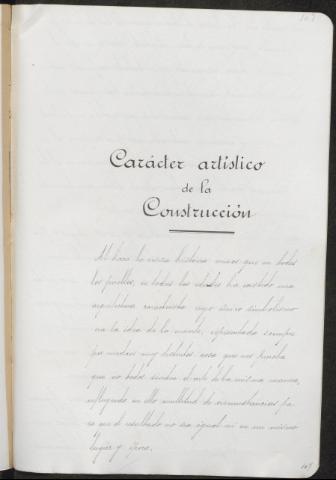 107
Carácter artístico
de la
Construcción
Al hacer la historia vimos que en todos
los pueblos, en todas las edades ha existido una
arquitectura cuyo único simbolismo
era la idea de la muerte, representada siempre
por medios muy distintos cosa que nos prueba
que no todos sienten el arte de la misma manera,
influyendo en ello multitud de circunstancias pa
ra que el resultado no sea igual ni en un mismo
lugar y época.
107